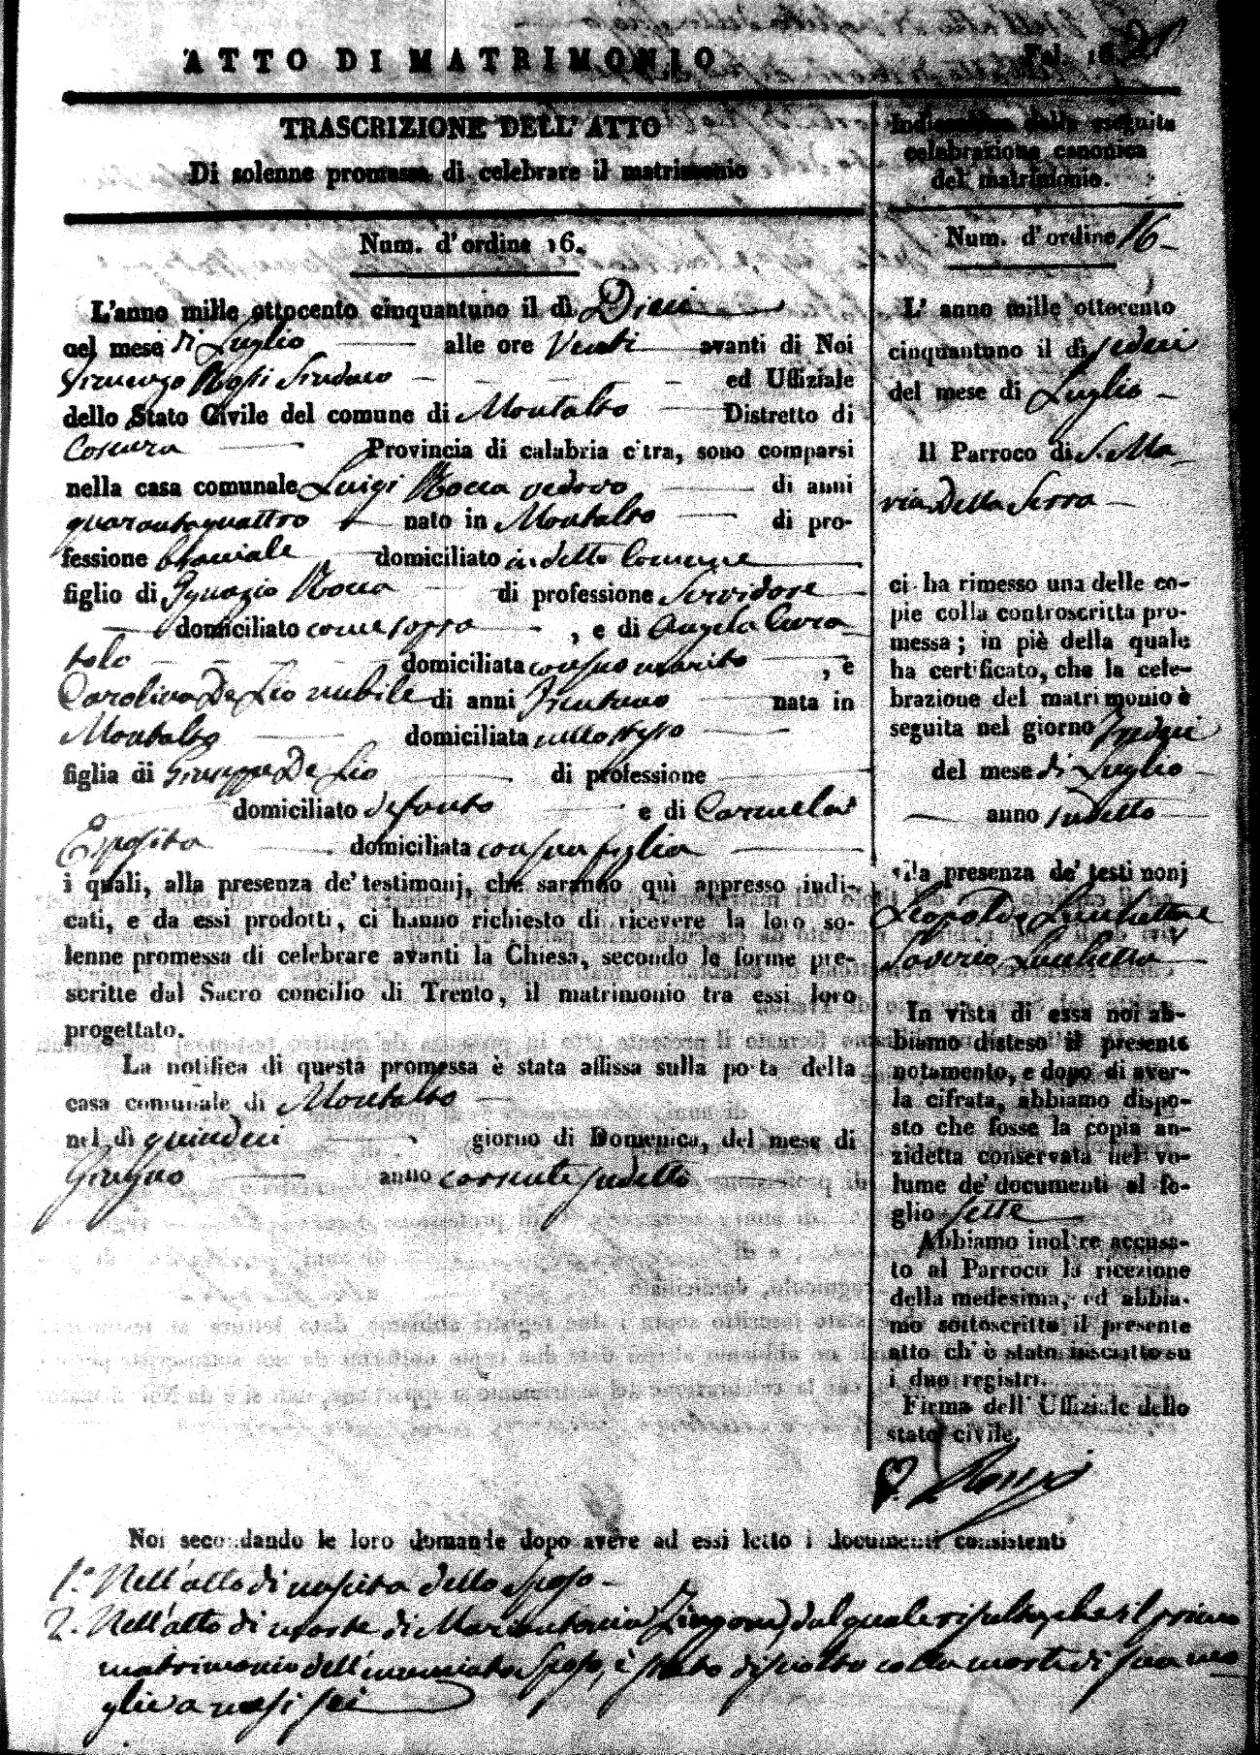 ATTO DI MATRIMONIO
Fol. 16
TRASCRIZIONE DELL' ATTO
Di solenne promessa di celebrare il matrimonio
Num. d'ordine 16.
L'anno mille ottocento cinquantuno il dì Dieci
nel mese di Luglio alle ore Venti avanti di Noi
Rossi Sindaco ed Uffiziale
dello Stato Civile del comune di Montalto Distretto di
Cosenza Provincia di calabria citra, sono comparsi
nella casa comunale Luigi Rocca vedovo di anni
quarantaquattro nato in Montalto di pro-
fessione bracciale domiciliato in detto Comune
figlio di Ignazio Rocca di professione Servidore
domiciliato come sopra , e di Angela Cura
tolo domiciliata con suo marito , e
Carolina De Lio nubile di anni Trentuno nata in
Montalto domiciliata nello stesso
figlia di Giuseppe De Lio di professione
domiciliato defonto e di Carmela
Esposito domiciliata con sua figlia
i quali, alla presenza de' testimonj, che saranno quì appresso indi-
cati, e da essi prodotti, ci hanno richiesto di ricevere la loro so-
lenne promessa di celebrare avanti la Chiesa, secondo le forme pre-
scritte dal Sacro concilio di Trento, il matrimonio tra essi loro
progettato.
La notifica di questa promessa è stata affissa sulla porta della
casa comunale di Montalto
nel dì quindeci giorno di Domenica, del mese di
Giugno anno corrente sudetto
Indicazione della seguita
celebrazione canonica
del matrimonio.
Num. d'ordine 16
L' anno mille ottocento
cinquantuno il dì sedeci
del mese di Luglio
Il Parroco di S. Ma
ria Della Serra
ci ha rimesso una delle co-
pie colla controscritta pro-
messa; in piè della quale
ha certificato, che la cele-
brazione del matrimonio è
seguita nel giorno Tredeci
del mese di Luglio
anno sudetto
alla presenza de' testimonj
Leopoldo Lucchetta e
Saverio Lucchetta
In vista di essa noi ab-
biamo disteso il presente
notamento, e dopo di aver-
la cifrata, abbiamo dispo-
sto che fosse la copia an-
zidetta conservata nel vo-
lume de' documenti al fo-
glio sette
Abbiamo inoltre accusa-
to al Parroco la ricezione
della medesima, ed abbia-
mo sottoscritto il presente
atto ch' è stato inscritto su
i due registri.
Firma dell' Uffiziale dello
stato civile.
Rossi
Noi secondando le loro domande dopo avere ad essi letto i documenti consistenti
1.° Nell'atto di nascita dello Sposo
2. Nell'atto di morte di Mariantonia dal quale risulta che il primo
matrimonio dell'enunciato Sposo, è stato disciolto colla morte di sua mo
glie a mesi sei